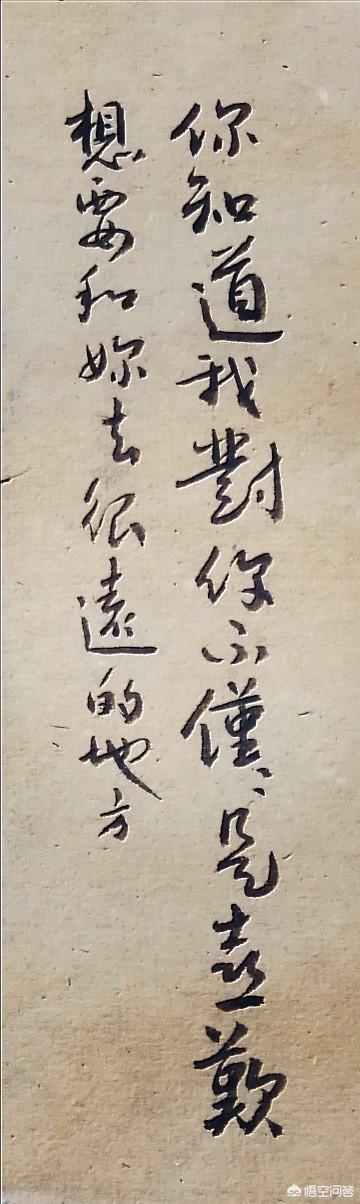 你知道我對你不僅僅是喜歡
想要和妳去很遠的地方
悟空问答